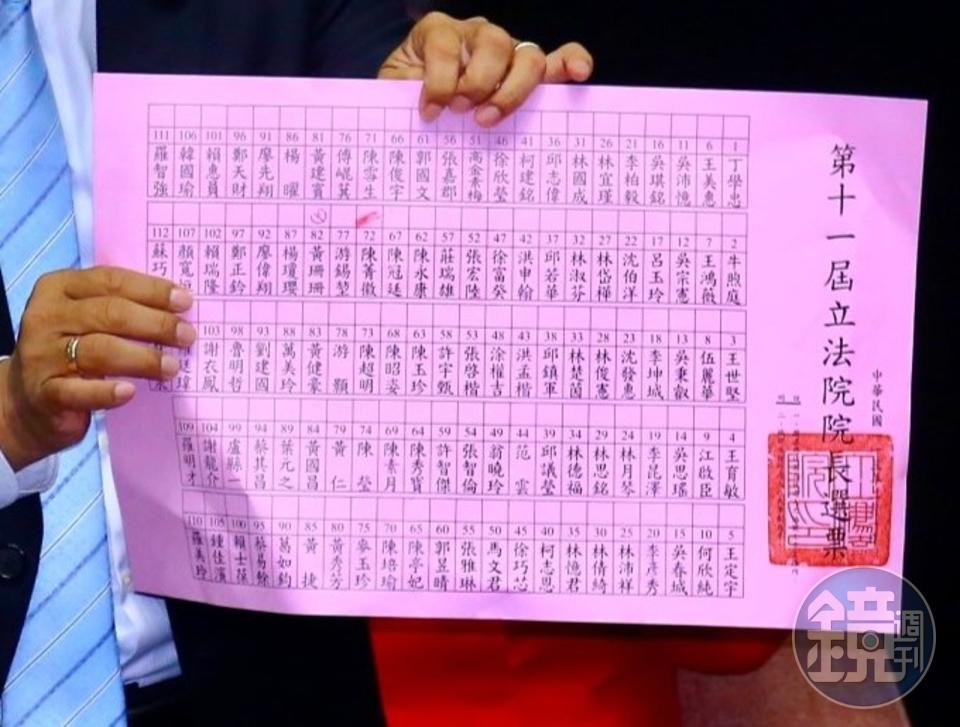 第十一屆立法院院長選票
中華民國
1 丁學忠
6 王美惠
11 吳沛憶
16 吳琪銘
21 李柏毅
26 林宜瑾
31 林國成
36 邱志偉
41 柯建銘
46 徐欣瑩
51 高金素梅
56 張嘉郡
61 郭國文
66 陳俊宇
71 陳雪生
76 傅崐萁
81 黃建賓
86 楊曜
91 廖先翔
96 鄭天財
101 賴惠員
106 韓國瑜
111 羅智強
2 牛煦庭
7 王鴻薇
12 吳宗憲
17 呂玉玲
22 沈伯洋
27 林岱樺
32 林淑芬
37 邱若華
42 洪申翰
47 徐富癸
52 張宏陸
57 莊瑞雄
62 陳永康
67 陳冠廷
72 陳菁徽
77 游錫堃
82 黃珊珊
87 楊瓊瓔
92 廖偉翔
97 鄭正鈐
102 賴瑞隆
107 顏寬
112 蘇巧
3 王世堅
8 伍麗華
13 吳秉叡
18 李坤城
23 沈發惠
28 林俊憲
33 林楚茵
38 邱鎮軍
43 洪孟楷
48 涂權吉
53 張啓楷
58 許宇甄
63 陳玉珍
68 陳昭姿
73 陳超明
78 游顥
83 黃健豪
88 萬美玲
93 劉建國
98 魯明哲
103 謝衣鳳
廷瑋
4 王育敏
9 江啟臣
14 吳思瑤
19 李昆澤
24 林月琴
29 林思銘
34 林德福
39 邱議瑩
44 范雲
49 翁曉玲
54 張智倫
59 許智傑
64 陳秀寳
69 陳素月
74 陳瑩
79 黃仁
84 黃國昌
89 葉元之
94 蔡其昌
99 盧縣一
104 謝龍介
109 羅明才
5 王定宇
10 何欣純
15 吳春城
20 李彥秀
25 林沛祥
30 林倩綺
35 林憶君
40 柯志恩
45 徐巧芯
50 馬文君
55 張雅琳
60 郭昱晴
65 陳亭妃
70 陳培瑜
75 麥玉珍
80 黃秀芳
85 黃捷
90 葛如鈞
95 蔡易餘
100 賴士葆
105 鍾佳濱
110 羅美玲
鏡週刊